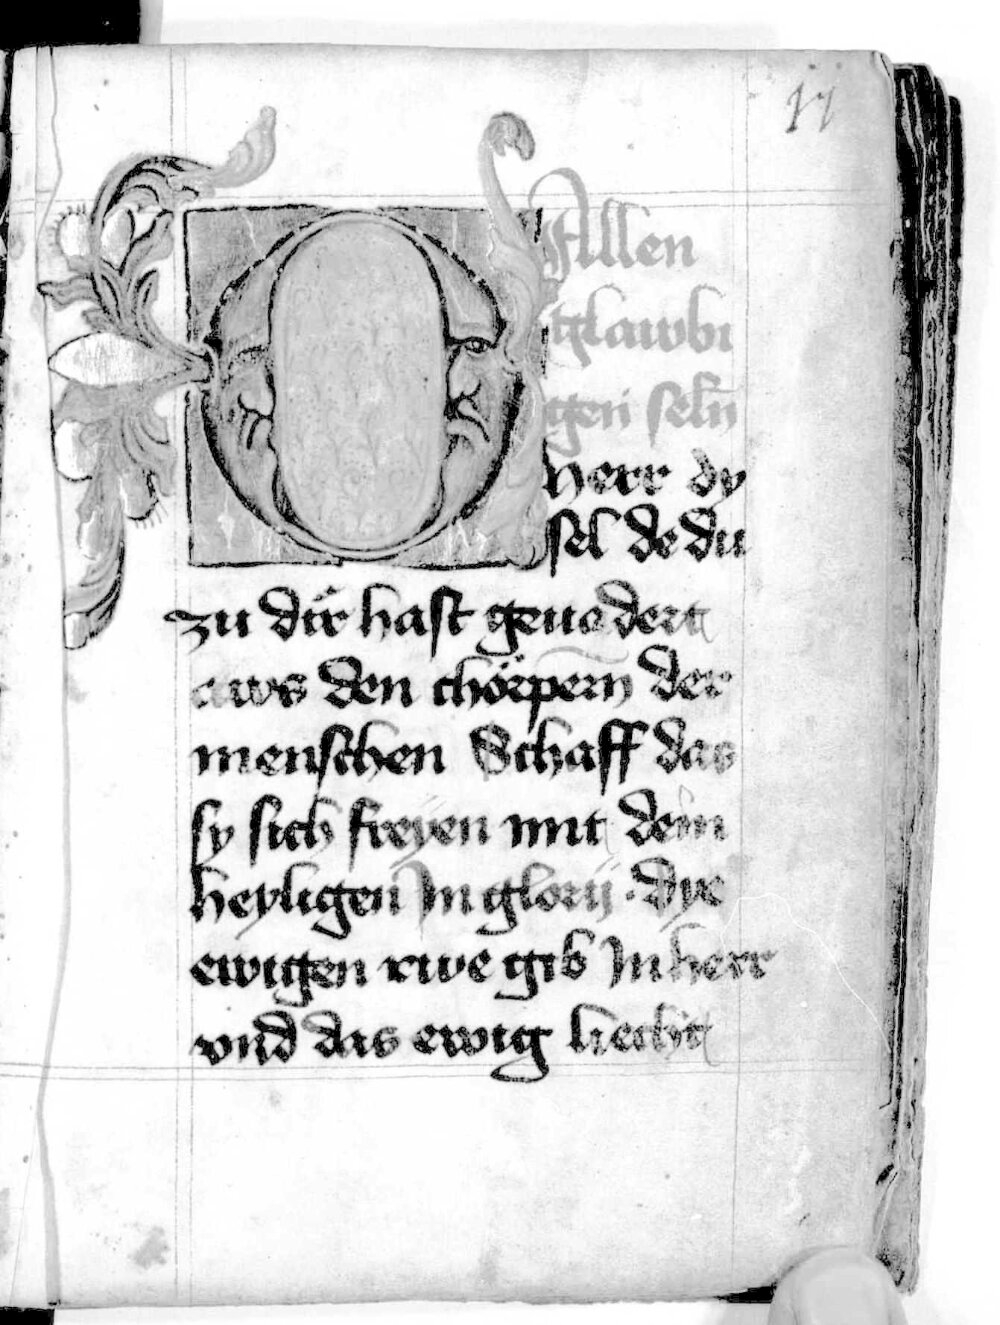 17
Allen
glawbi
gen seln̄
O herr dy
sel de du
zu dir hast geuodert
aws den chörpern der
menschen Schaff das
sy sich freyen mit dem
heyligen In glorij · dye
ewigen rwe gib In herr
vnd das ewig liecht